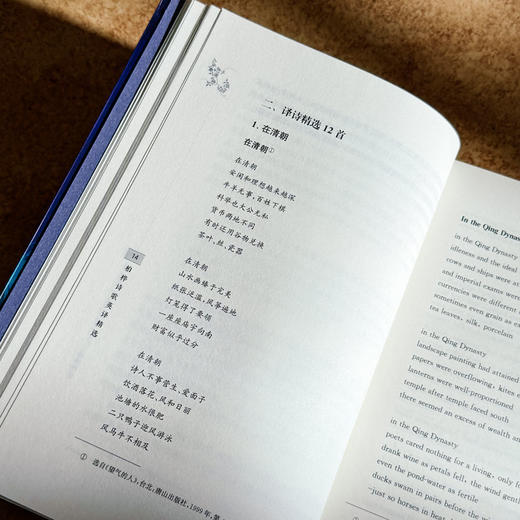 二、译诗精选12首
1. 在清朝
在清朝①
在清朝
安闲和理想越来越深
牛羊无事，百姓下棋
科举也大公无私
货币两地不同
有时还用谷物兑换
茶叶、丝、瓷器
在清朝
山水画臻于完美
纸张泛滥，风筝遍地
灯笼得了要领
一座座庙宇向南
财富似乎过分
在清朝
诗人不事营生、爱面子
饮酒落花，风和日丽
池塘的水很肥
二只鸭子迎风游泳
风马牛不相及
① 选自《望气的人》，台北：唐山出版社，1999年，第
14
柏桦诗歌英译精选
In the Qing Dynasty
in the Qing Dynasty
idleness and the ideal
cows and ships were at
and imperial exams were
currencies were different
sometimes even grain as e
tea leaves, silk, porcelain
in the Qing Dynasty
landscape painting had attained
papers were overflowing, kites e
lanterns were well-proportioned
temple after temple faced south
there seemed an excess of wealth an
in the Qing Dynasty
poets cared nothing for a living, only fo
drank wine as petals fell, the wind gentl
even the pond-water as fertile
ducks swam in pairs before the wind
—just so horses in heat